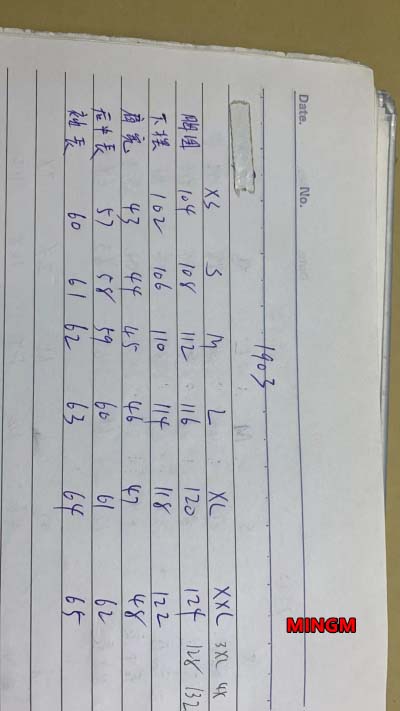 Date. No.
1903
XS S M L XL XXL 3XL 4X
胸围 104 108 112 116 120 124 128 132
下摆 102 106 110 114 118 122
肩宽 43 44 45 46 47 48
后中长 57 58 59 60 61 62
袖长 60 61 62 63 64 65
MINGM